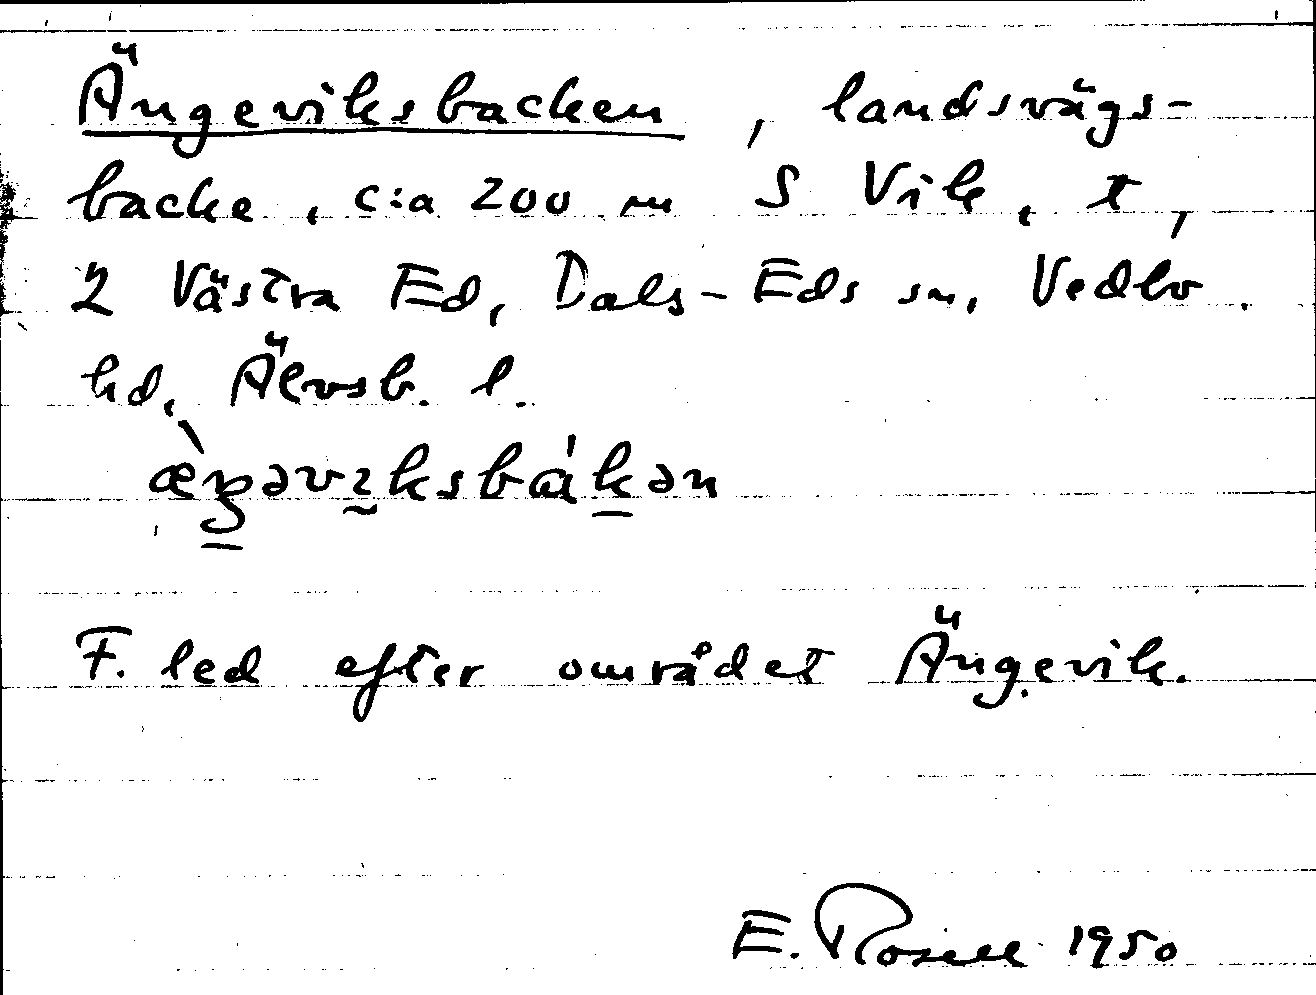 Ängeviksbacken, landsvägs-
backe, c:a 200 m S Vik, t,
2 Västra Ed, Dals-Eds sn, Vedbo
hd, Älvsb. l.
æ̀ŋəvɪksbákən
F. led efter området Ängevik.
E. Rosell 1950